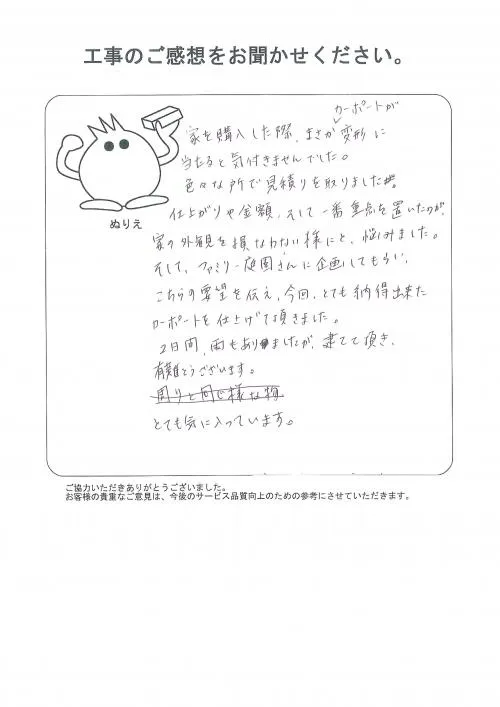 工事のご感想をお聞かせください。
カーポートが
家を購入した際、まさか変形に
当たると気付きませんでした。
色々な所で見積りを取りました
仕上がりや金額、そして一番重点を置いたのが、
家の外観を損なわない様にと、悩みました。
そして、ファミリー庭園さんに企画してもらい、
こちらの要望を伝え、今回、とても納得出来た
カーポートを仕上げて頂きました。
2日間、雨もありましたが、建てて頂き、
有難とうございます。
周りと同じ様な物
とても気に入っています。
ぬりえ
ご協力いただきありがとうございました。
お客様の貴重なご意見は、今後のサービス品質向上のための参考にさせていただきます。